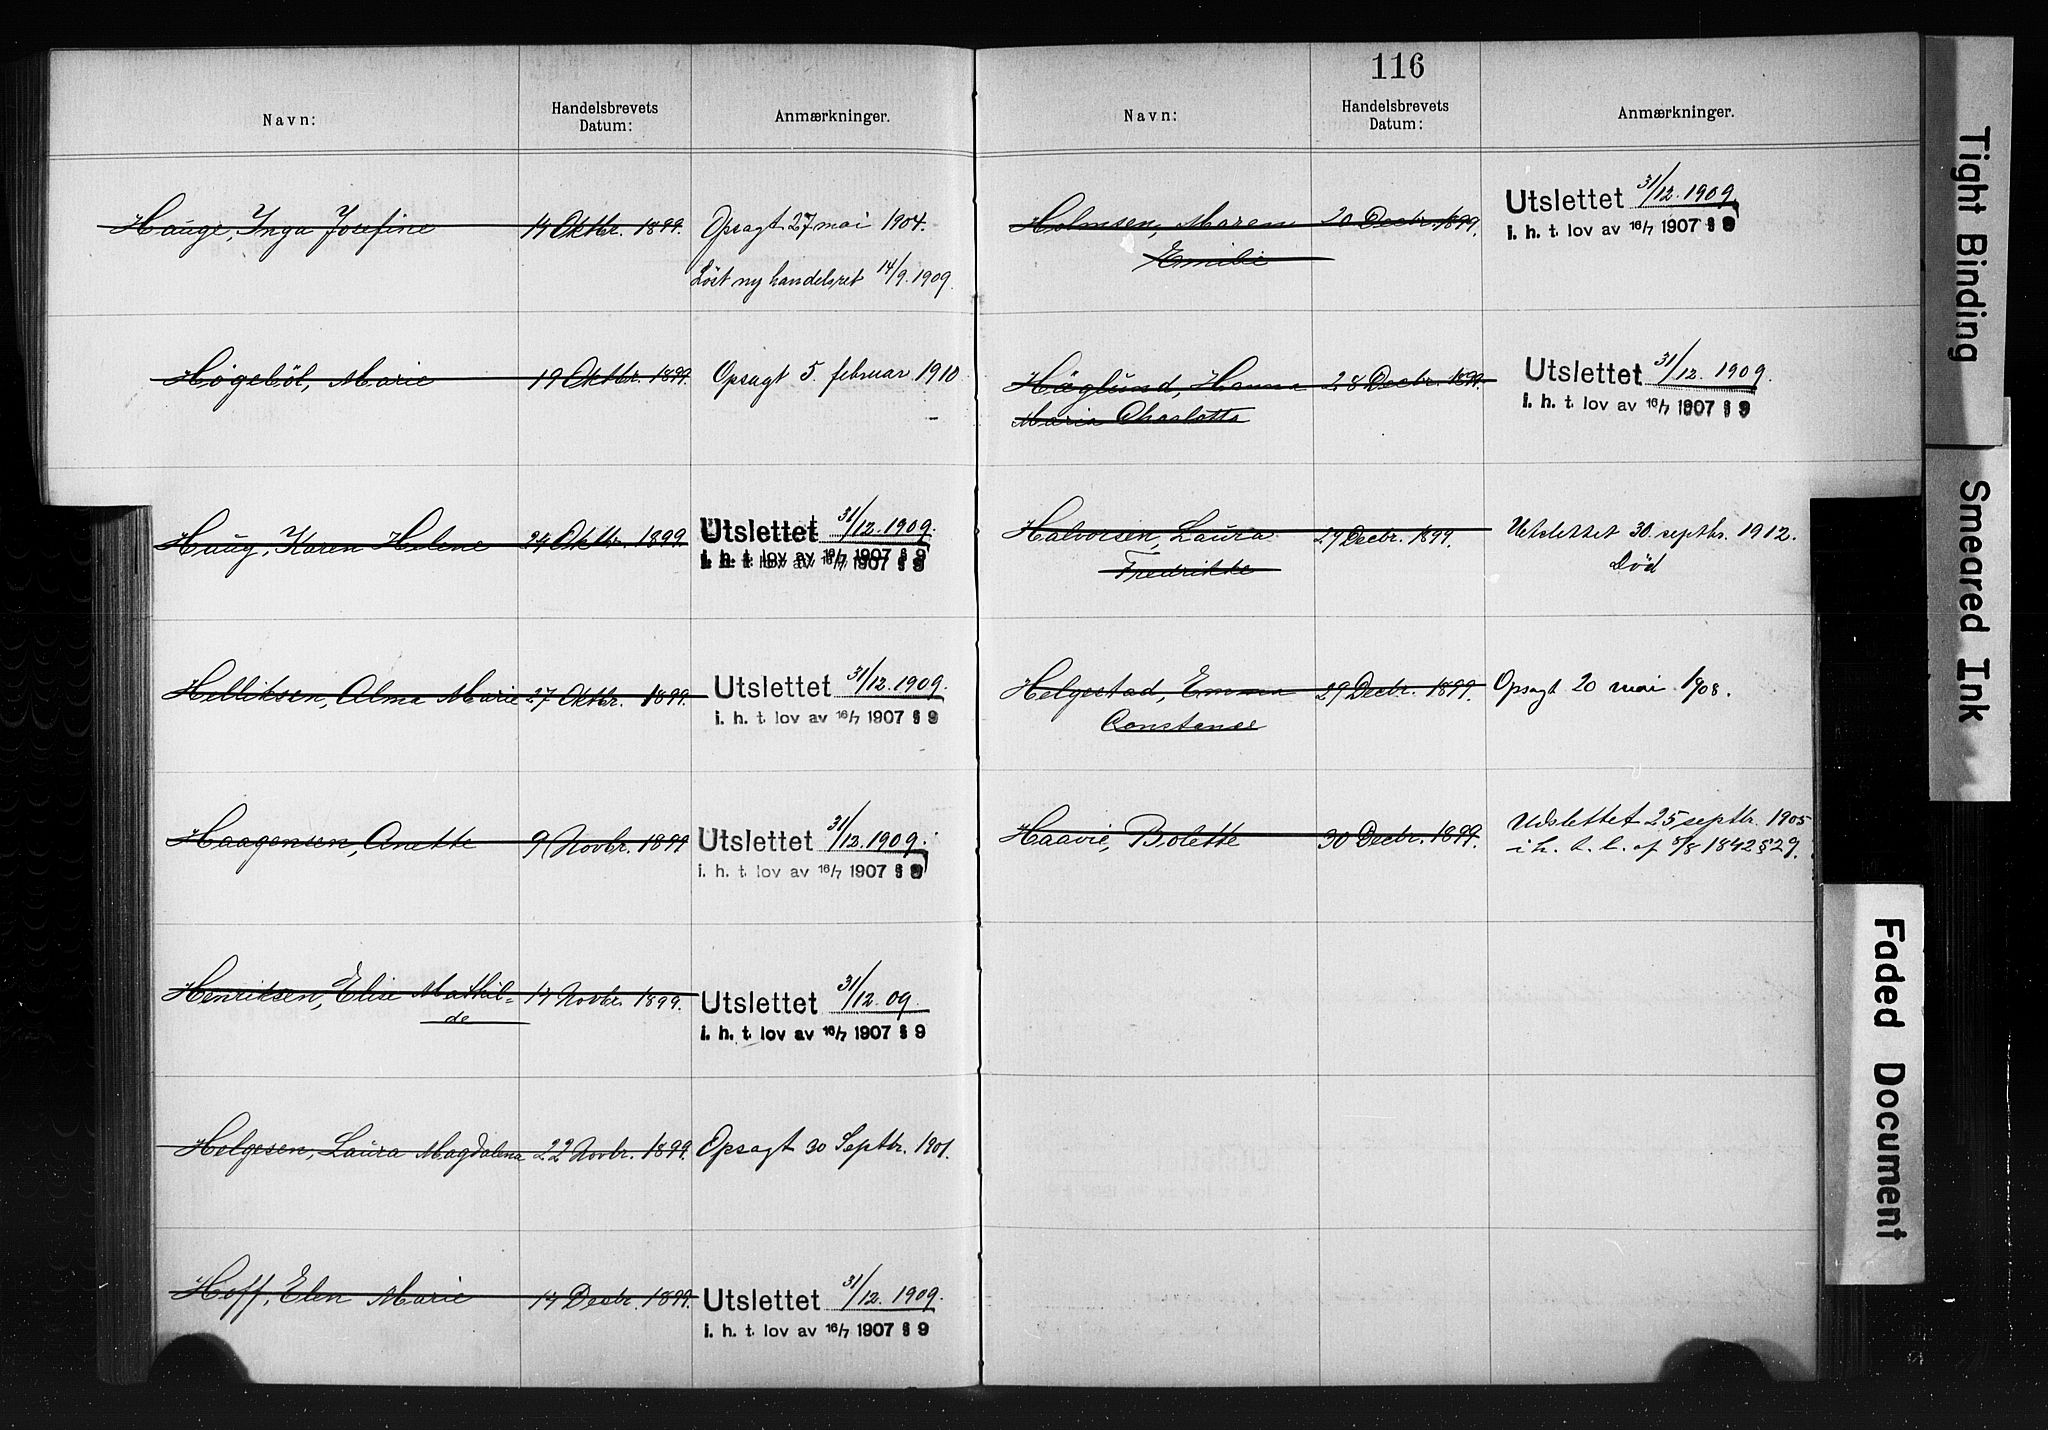 Navn:
Handelsbrevets
Datum:
Anmærkninger.
Hauge, Inga Josefine 14 Oktbr. 1899. Opsagt 27 mai 1904.
Löst ny handelsret 14/9. 1909.
Høgeböl, Marie 19 Oktbr. 1899. Opsagt 5. februar 1910
Haug, Karen Helene 24 Oktbr. 1899. Utslettet 31/12. 1909.
i. h. t. lov av 16/7 1907 § 9
Helliksen, Alma Marie 27 Oktbr. 1899. Utslettet 31/12. 1909.
i. h. t. lov av 16/7 1907 § 9
Haagensen, Anette 9 Novbr. 1899 Utslettet 31/12. 1909.
i. h. t. lov av 16/7 1907 § 9
Henriksen, Elise Mathil- 14 Novbr. 1899. Utslettet 31/12. 09.
de
i. h. t. lov av 16/7 1907 § 9
Helgesen, Laura Magdalena 22 Novbr. 1899. Opsagt 30 Septbr. 1901.
Hoff, Elen Marie 14 Decbr. 1899. Utslettet 31/12. 1909.
i. h. t. lov av 16/7 1907 § 9
116
Navn:
Handelsbrevets
Datum:
Anmærkninger.
Holmsen, Maren 20 Decbr. 1899. Utslettet 31/12. 1909.
Emilie
i. h. t. lov av 16/7 1907 § 9
Häglund, Hanna 28 Decbr. 1899. Utslettet 31/12. 1909.
Maria Charlotta
i. h. t. lov av 16/7 1907 § 9
Halvorsen, Laura 29 Decbr. 1899. Utslettet 30. septbr. 1912.
Fredrikke
Död
Helgestad, Emma 29 Decbr. 1899. Opsagt 20 mai 1908.
Constance
Haavie, Bolette 30 Decbr. 1899. Udslettet 25 septbr. 1905
i h. t. l. af 8/8 1842 § 29.
Tight Binding
Smeared Ink
Faded Document